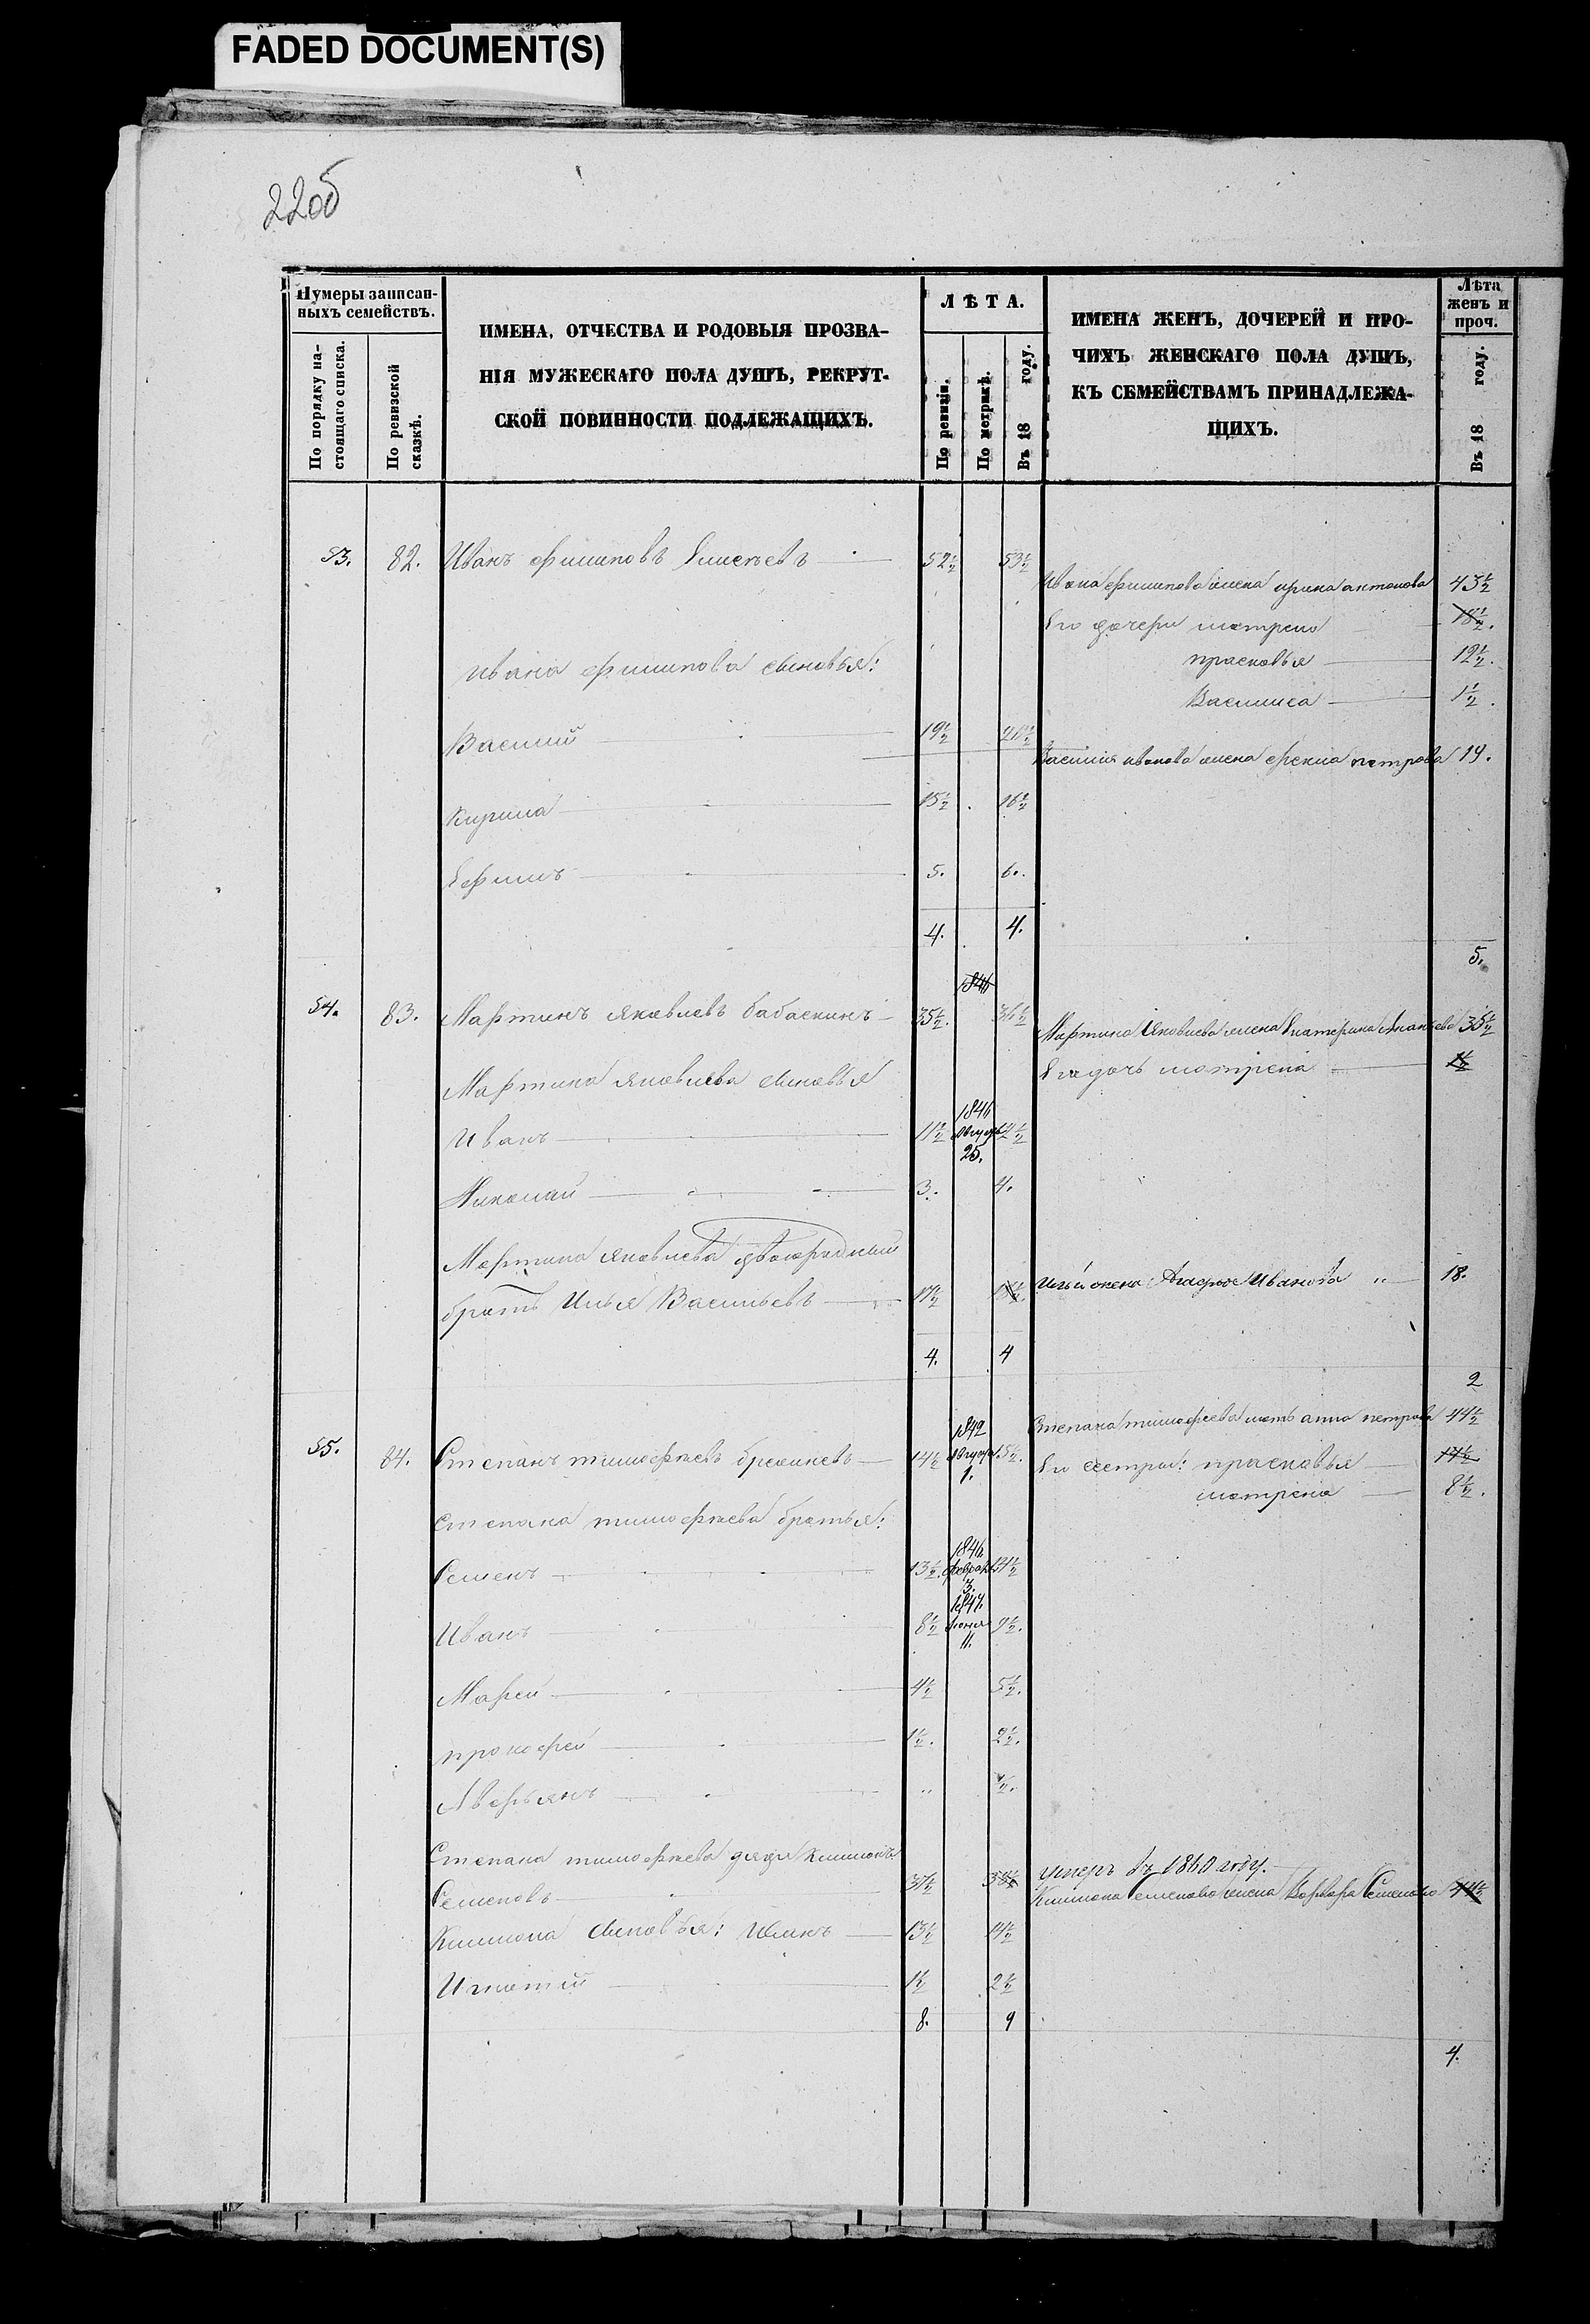 FADED DOCUMENT(S)
22об
Нумеры записан-
ныхъ семействъ.
По порядку на-
стоящаго списка.
По ревизской
сказкѣ.
ИМЕНА, ОТЧЕСТВА И РОДОВЫЯ ПРОЗВА-
НІЯ МУЖЕСКАГО ПОЛА ДУШЪ, РЕКРУТ-
СКОЙ ПОВИННОСТИ ПОДЛЕЖАЩИХЪ.
ЛѢТА.
По ревизіи.
По метрикѣ.
Въ 18 году.
ИМЕНА ЖЕНЪ, ДОЧЕРЕЙ И ПРО-
ЧИХЪ ЖЕНСКАГО ПОЛА ДУШЪ,
КЪ СЕМЕЙСТВАМЪ ПРИНАДЛЕЖА-
ЩИХЪ.
Лѣта
женъ и
проч.
Въ 18 году.
53. 82. Иванъ филиповъ 52½ 53½
Ивана филипова жена ирина антонова 43½
Его дочери матрена 18½.
прасковья 12½.
ивана филипова сыновья:
Василиса 1½.
Василий 19½
Василия иванова жена фекла петрова 19.
Кирила 15½ 16½
Ефимъ 5. 6.
4. 4.
5.
1846
54. 83. Мартинъ яковлевъ бабаскинъ 35½. 36½
Мартина Яковлева жена Катерина 35½
Его дочь матрена ½
Мартина яковлева сыновья
Иванъ 11½ 1846 Август 25. 12½
Николай 3. 4.
Мартина яковлева двоюродный
братъ Илья Васильевъ 17½ 18½
Ильи жена Агафья Иванова 18.
4. 4
2
Степана тимофеева мать анна петрова 44½
55. 84. Степанъ тимофѣевъ 14½ 1842 Августа 1. 15½.
Его сестры: прасковья 17½
матрена 8½.
Степана тимофѣева братья:
Семенъ 13½. 1846 февраля 3. 14½
Иванъ 8½ 1847 11. 9½.
Марей 4½ 5½.
прокофей 1½. 2½.
Аверьянъ „ ½.
Степана тимофѣева дядя Климонъ
Семеновъ 37½ 38½
умеръ въ 1860 году.
Климона Семенова жена Варвара Семенова 44½
Климона сыновья: Иванъ 13½ 14½
Игнатий 1½ 2½
8. 9
4.